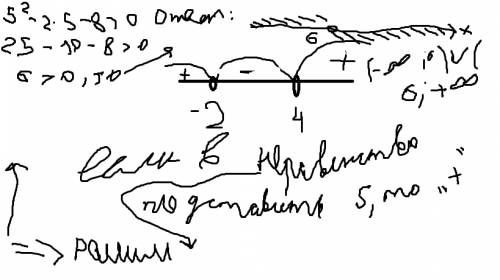 5² - 2·5 - 8 > 0 Ответ:
25 - 10 - 8 > 0
6 > 0, то
6 x
+ - + (-∞ ; 6) ∪ (
6; +∞
-2 4
Если в неравенство
подставить 5, то „+"
=>